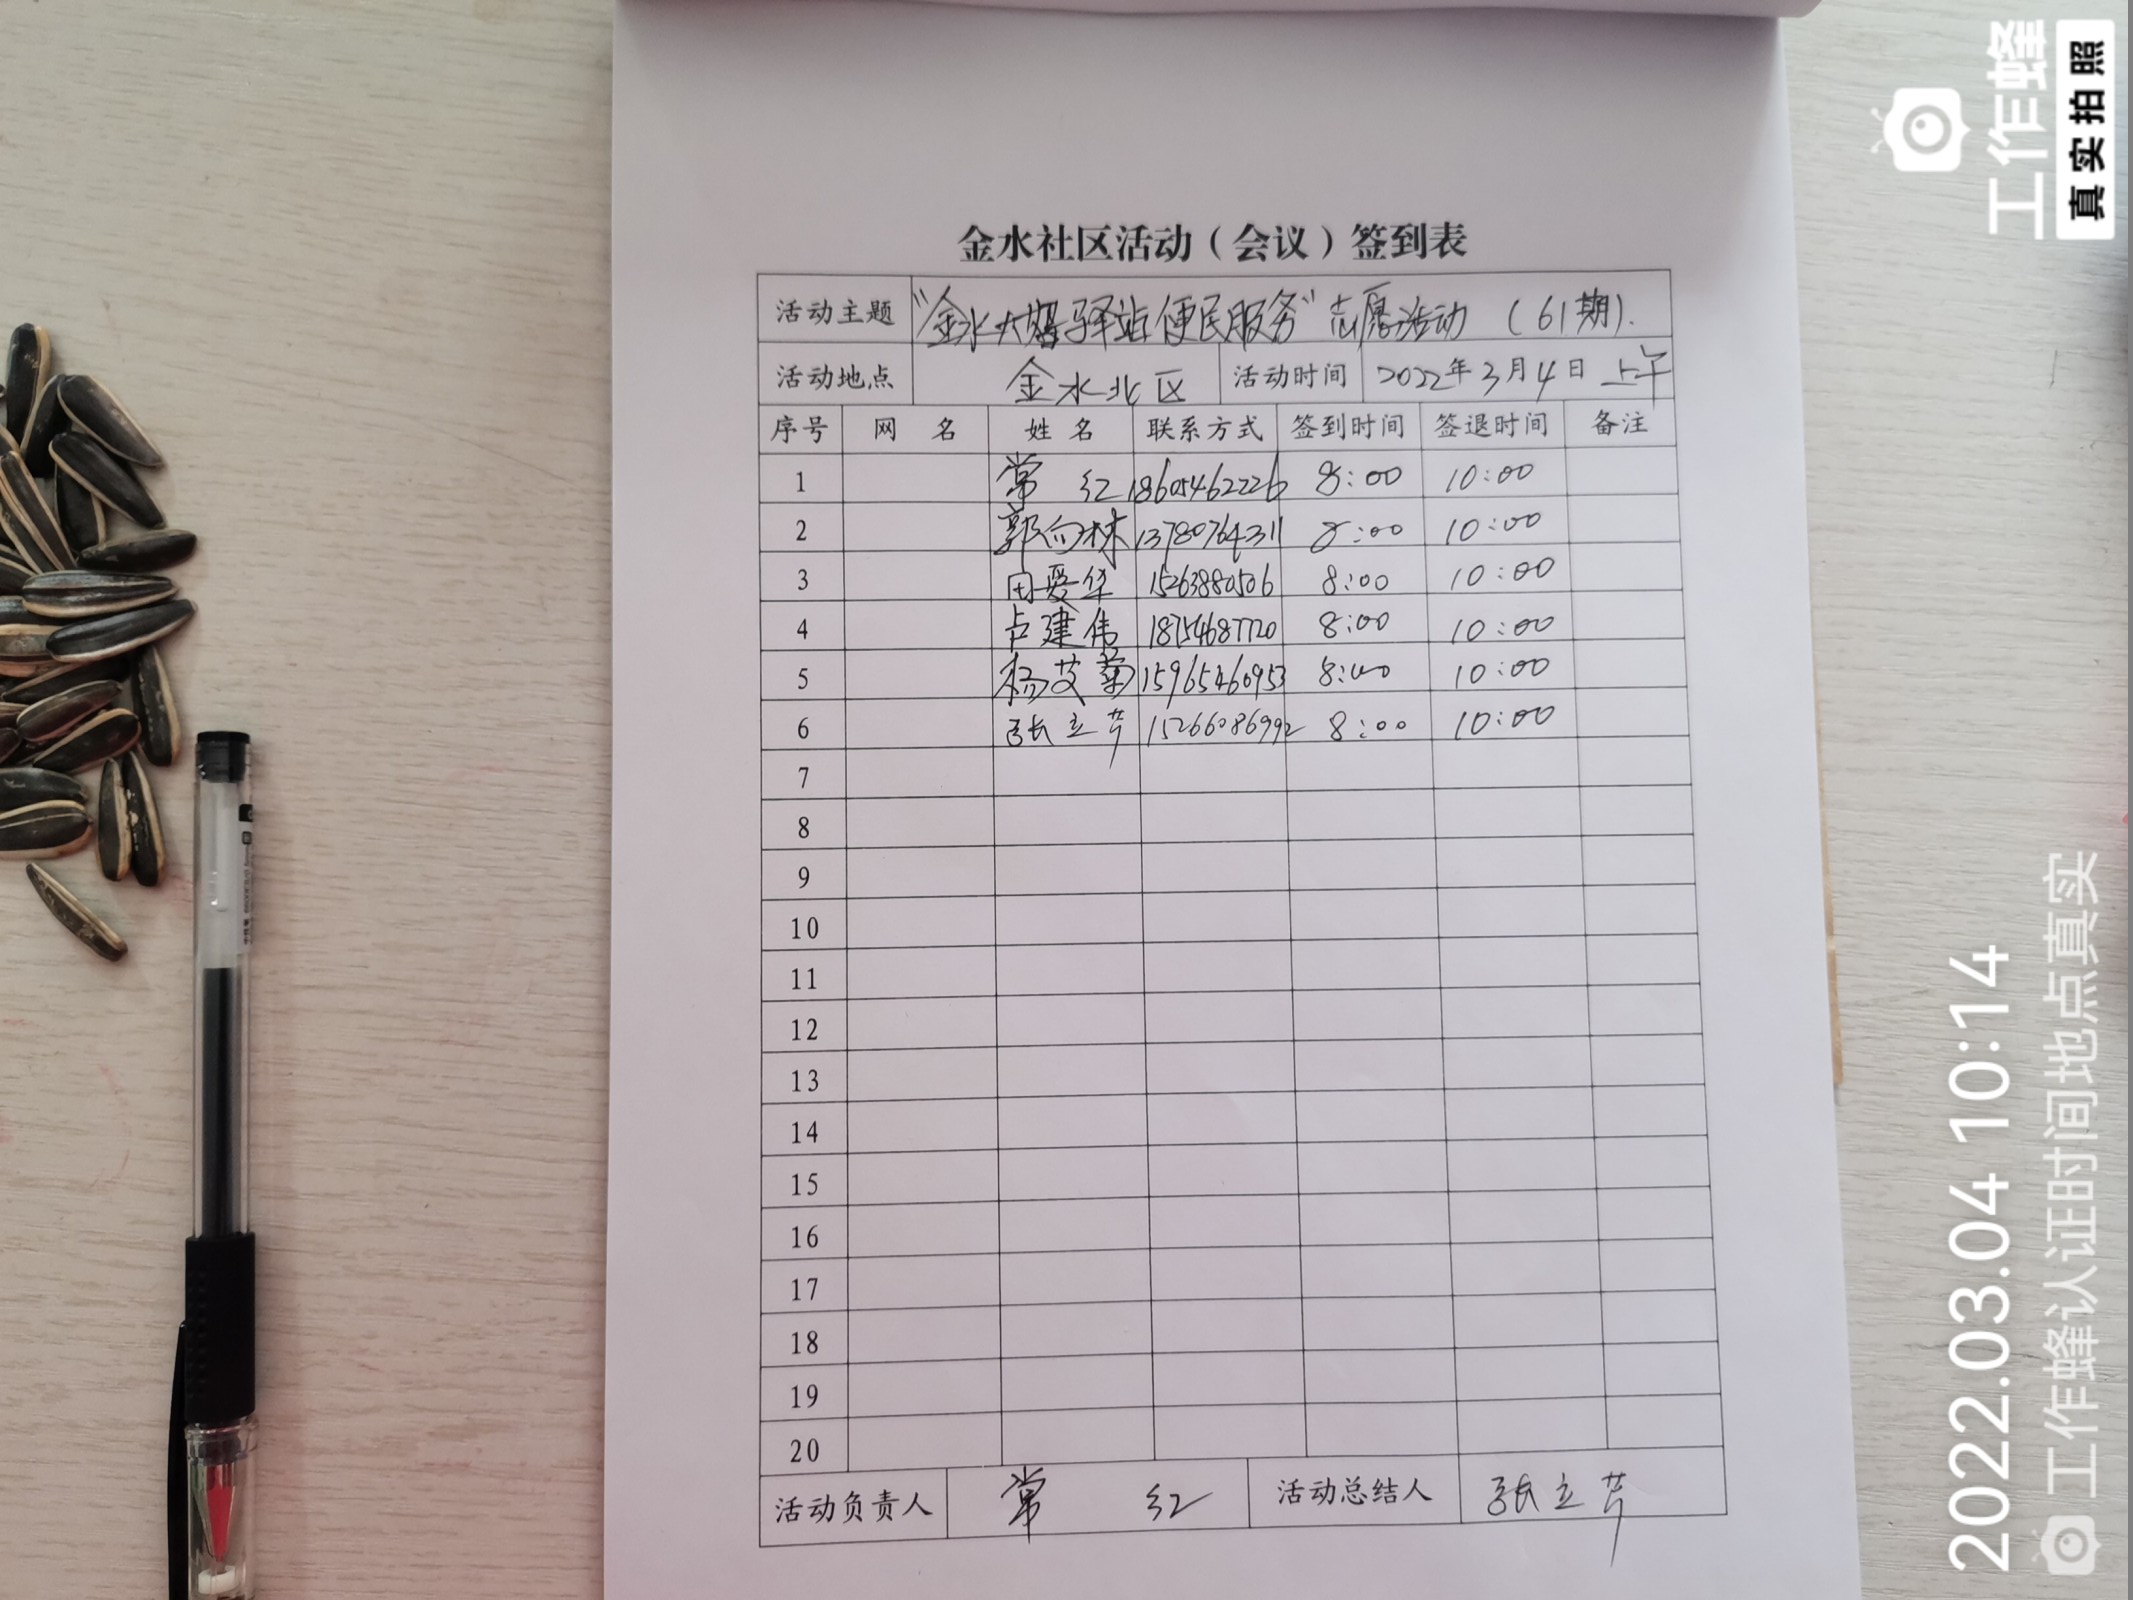 金水社区活动（会议）签到表
活动主题 “金水大嫂驿站便民服务”志愿活动（61期）.
活动地点 金水北区 活动时间 2022年3月4日 上午
序号 网 名 姓 名 联系方式 签到时间 签退时间 备注
1 常 红 18605462226 8:00 10:00
2 郭向林 13780764311 8:00 10:00
3 田爱华 15263880506 8:00 10:00
4 卢建伟 18754687720 8:00 10:00
5 杨艾菊 15965460953 8:00 10:00
6 张立芹 15266086992 8:00 10:00
7
8
9
10
11
12
13
14
15
16
17
18
19
20
活动负责人 常 红 活动总结人 张立芹
工作蜂
真实拍照
2022.03.04 10:14
工作蜂认证时间地点真实